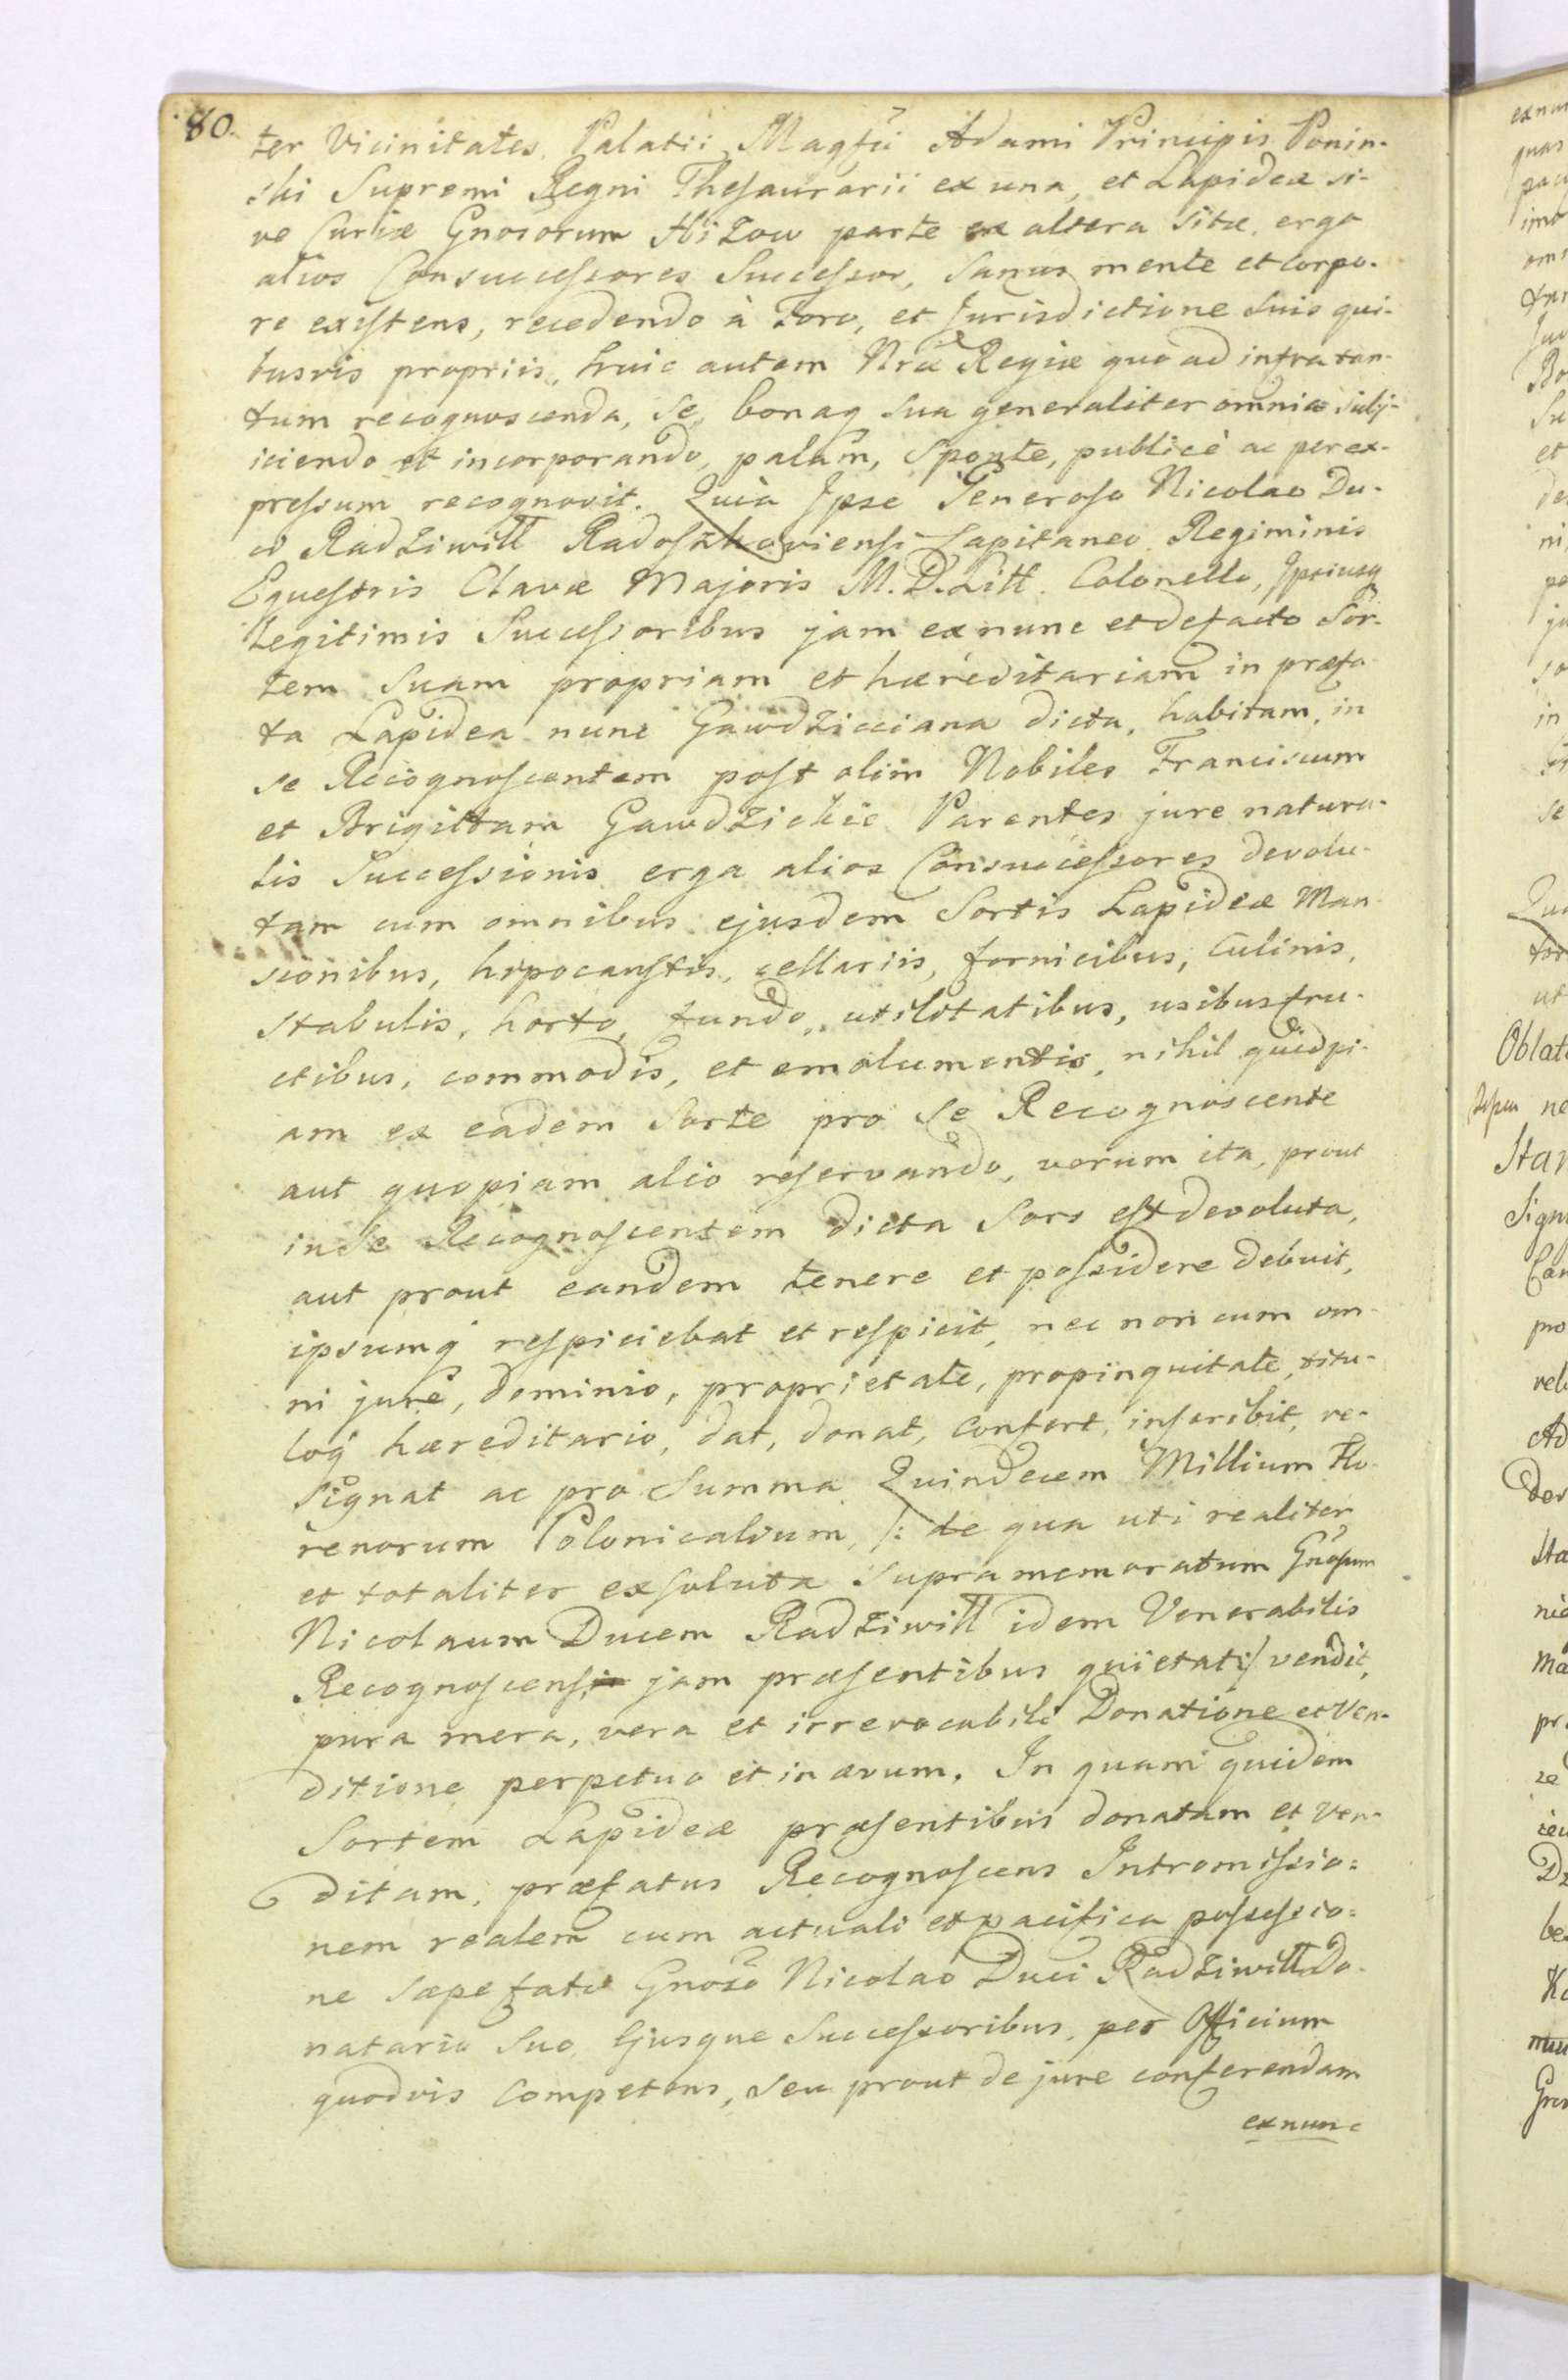 80.
ter Vicinitates Palatii Magfci Adami Principis Ponin-
ski Supremi Regni Thesaurarii ex una, et Lapideæ si-
ve Curiæ Gnosorum Hiżow parte ex altera sitæ, erga
alios Consuccessores Successor, sanus mente et corpo-
re existens, recedendo à Foro, et Jurisdictione suis qui-
busvis propriis, huic autem Nræ Regiæ quo ad infra tan-
tum recognoscenda, se, bonaq sua generaliter omnia subj-
iciendo et incorporando, palam, sponte, publicè ac per ex-
pressum recognovit. Quia Ipse Generoso Nicolao Du-
ci Radziwiłł Radoszkoviensi Capitaneo Regiminis
Equestris Clavæ Majoris M. D. Litt. Colonello, Ipsiusq
Legitimis Successoribus jam exnunc et defacto Sor-
tem Suam propriam et hæreditariam in præfa-
ta Lapidea nunc Gawdzicciana dicta, habitam, in
se Recognoscentem post olim Nobiles Franciscum
et Brigittam Gawdzickie Parentes jure natura-
lis Successionis erga alios Consuccessores devolu-
tam cum omnibus ejusdem Sortis Lapideæ Man-
sionibus, hipocaustis, cellariis, fornicibus, Culinis,
stabulis, horto, fundo, utilitatibus, usibusfru-
ctibus, commodis, et emolumentis, nihil quidpi-
am ex eadem Sorte pro se Recognoscente
aut quopiam alio reservando, verum ita, prout
in se Recognoscentem dicta Sors est devoluta,
aut prout eandem tenere et possidere debuit,
ipsumq respiciebat et respicit, nec non cum om-
ni jure, dominio, proprietate, propinquitate, titu-
loq hæreditario, dat, donat, confert, inscribit, re-
signat ac pro Summa Quindecem Millium Flo-
renorum Polonicalium, /: de qua uti realiter
et totaliter exsoluta supramemoratum Gnosum
Nicolaum Ducem Radziwiłł idem Venerabilis
Recognoscens jam præsentibus quietat :/ vendit,
pura mera, vera et irrevocabili Donatione et Ven-
ditione perpetuo et in ævum. In quam quidem
Sortem Lapideæ præsentibus donatam et ven-
ditam, præfatus Recognoscens Intromissio=
nem realem cum actuali et pacifica possessio=
ne sæpefato Gnoso Nicolao Duci Radziwiłł Do-
natario suo, Ejusque Successoribus, per Officium
quodvis Competens, seu prout de jure conferendam
exnunc